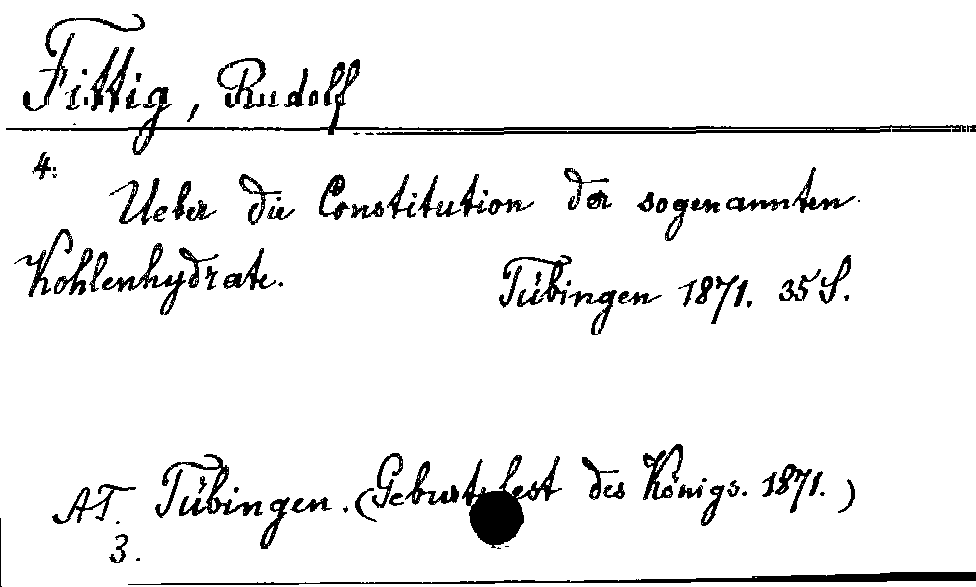 Fittig, Rudolf
4:
Ueber die Constitution der sogenannten
Kohlenhydrate.
Tübingen 1871. 35 S.
AT. Tübingen. (Geburtsfest des Königs. 1871.)
3.